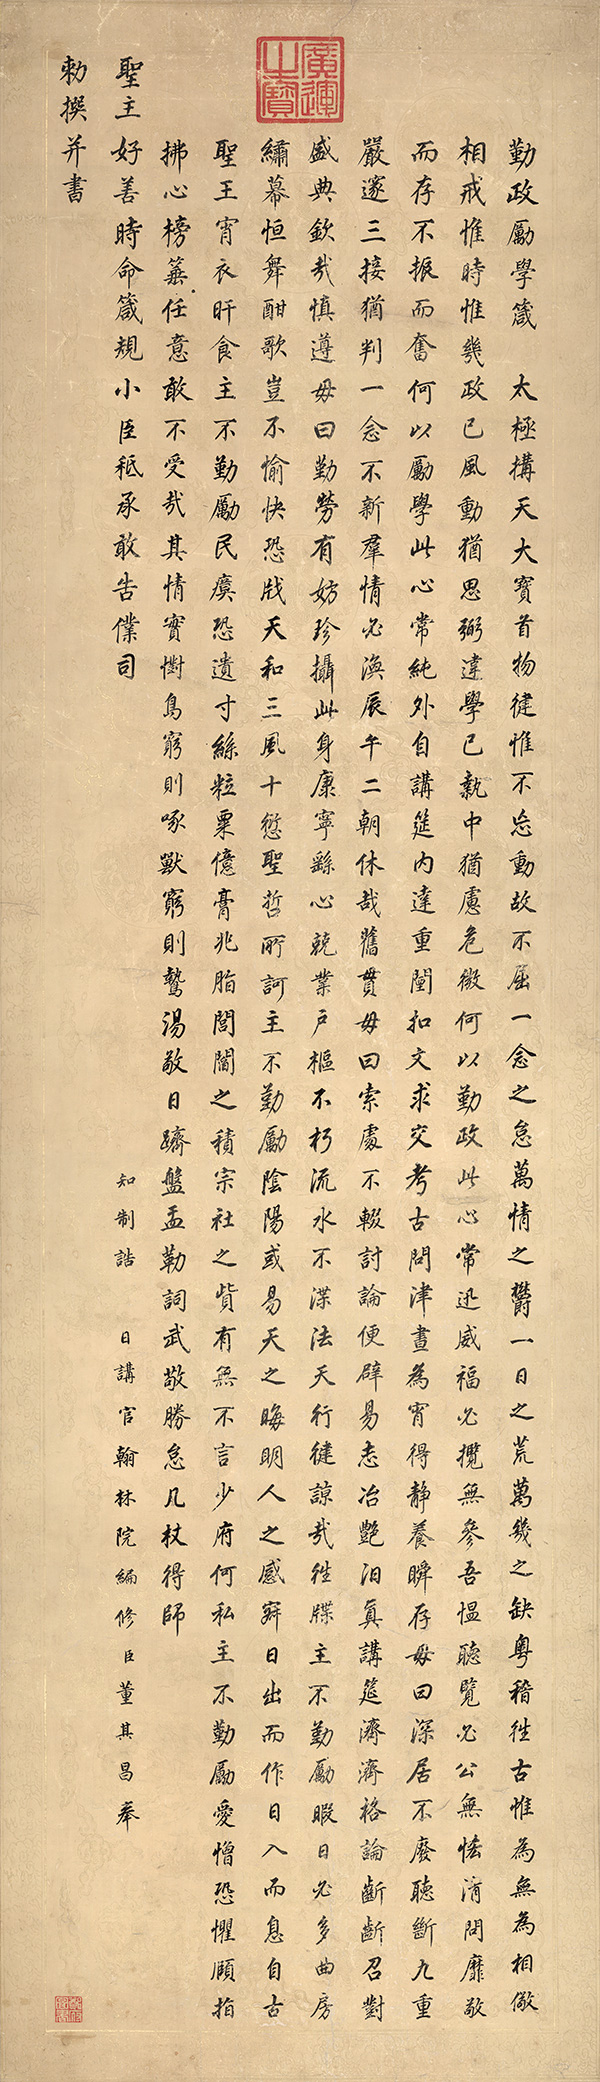 廣運之寶
勤政勵學箴　太極搆天大寶首物健惟不忘動故不屈一念之怠萬情之欝一日之荒萬幾之缺粵稽往古惟為無為相儆
相戒惟時惟幾政已風動猶思弼違學已執中猶慮危微何以勤政此心常迅威福必攬無參吾慍聽覽必公無恡清問靡敬
而存不振而奮何以勵學此心常純外自講筵內達重闈扣文求交考古問津晝為宵得靜養瞬存毋曰深居不廢聽斷九重
嚴邃三接猶判一念不新羣情必渙辰午二朝休哉舊貫毋曰索處不輟討論便辟易志冶艷汨真講筵濟濟格論齗齗召對
盛典欽哉慎遵毋曰勤勞有妨珍攝此身康寧繇心兢業戶樞不朽流水不渫法天行健諒哉往牒主不勤勵暇日必多曲房
繡幕恒舞酣歌豈不愉快恐戕天和三風十愆聖哲所訶主不勤勵陰陽或易天之晦明人之感寤日出而作日入而息自古
聖王宵衣旰食主不勤勵民瘼恐遺寸絲粒粟億膏兆脂閭閻之積宗社之貲有無不言少府何私主不勤勵愛憎恐懼願指
拂心榜箠任意敢不受哉其情實懟鳥窮則啄獸窮則驁湯敬日躋盤盂勒詞武敬勝怠几杖得師
聖主好善時命箴規小臣秪承敢告僕司
知制誥　日講官翰林院編修臣董其昌奉
勅撰并書